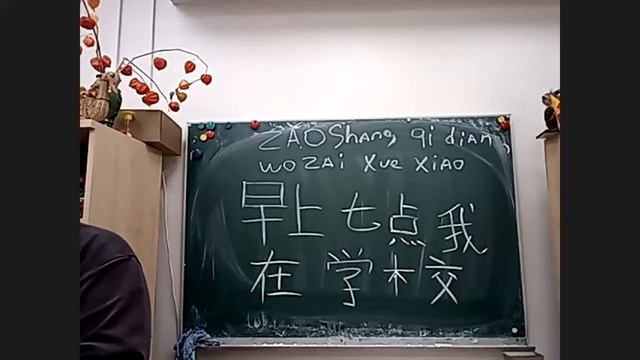 ZAOShang qi diAN
wo ZAi Xue XiAO
早上七点我
在学校